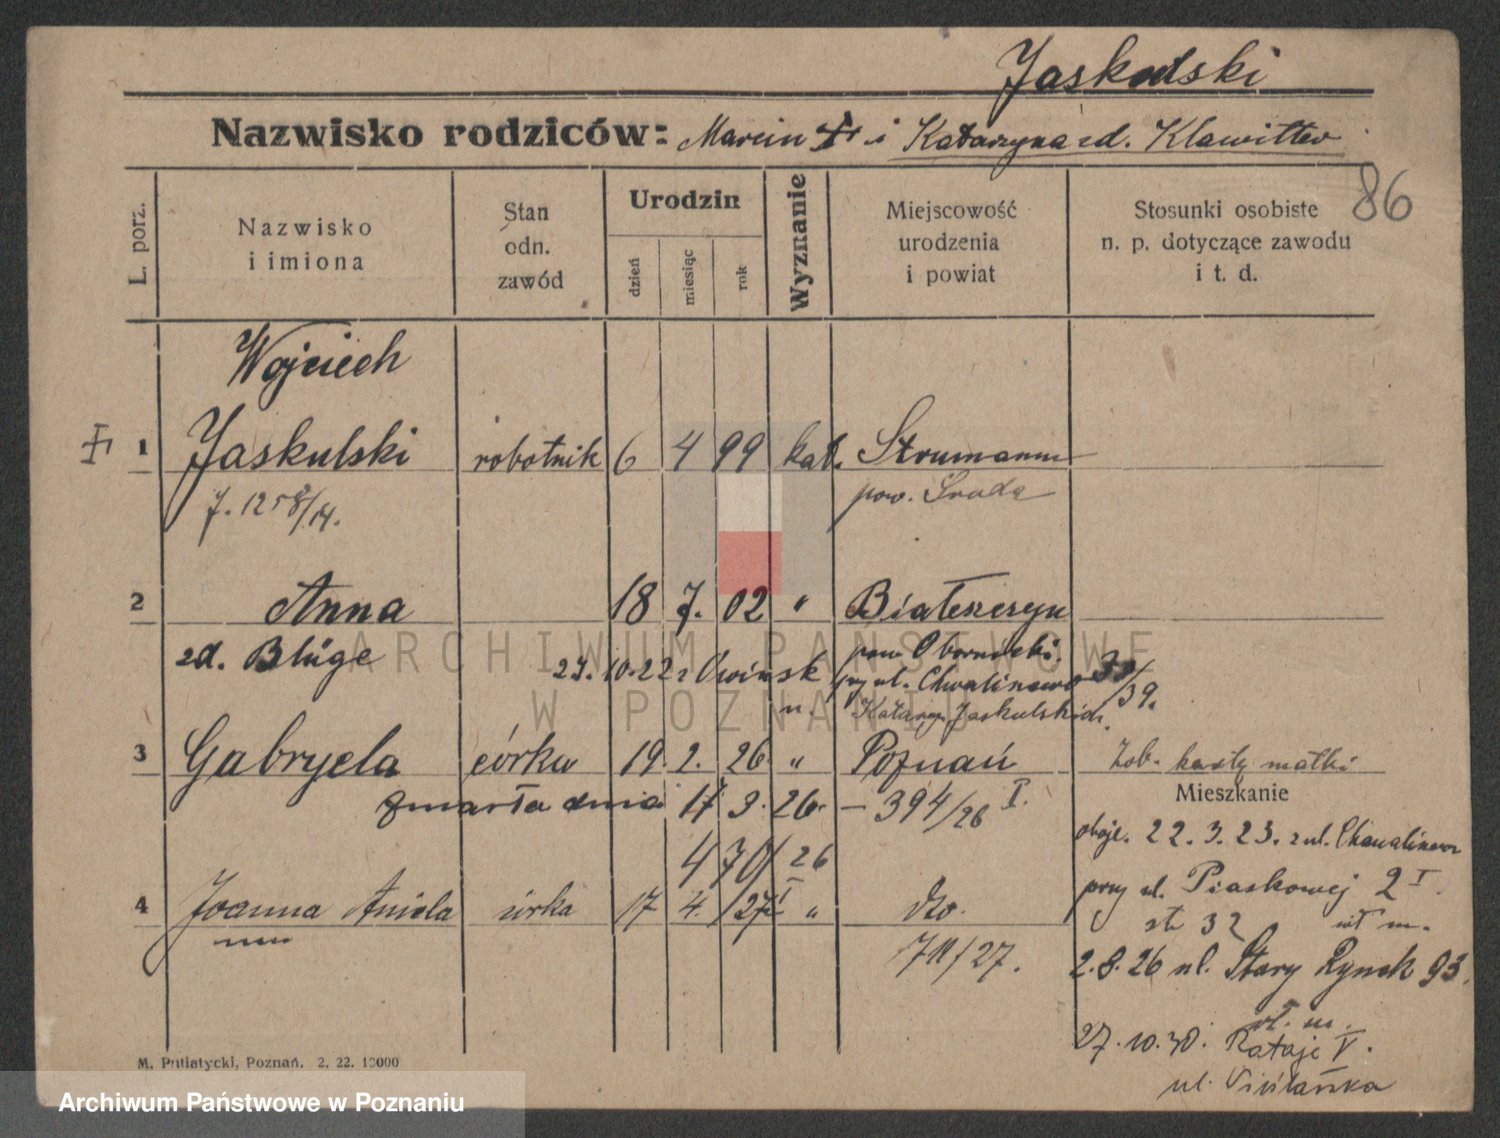 Jaskulski
Nazwisko rodziców: Marcin i Katarzyna zd. Klawitter
86
L. porz.
Nazwisko i imiona
Stan odn. zawód
Urodzin
dzień
miesiąc
rok
Wyznanie
Miejscowość urodzenia i powiat
Stosunki osobiste n. p. dotyczące zawodu i t. d.
Wojciech
1 Jaskulski robotnik 6 4 99 kat.
J. 1258/14. pow. Środa
2 Anna 18 7. 02 "
zd. Blüge 27. 10. 22 z Owińsk
pow. Obornicki
przy ul. Chwaliszewo 39/39.
u. Katarzy. Jaskulskich.
3 Gabryela córka 19. 2. 26 " Poznań Zob. karty matki
zmarła dnia 17 3. 26. – 394/26 I.
Mieszkanie
oboje. 22. 3. 23. z ul. Chwaliszewo
470/26
4 Joanna Aniela córka 17 4. 27 " dto.
przy ul. Piaskowej 2 I.
str 32 wł m.
711/27.
2. 8. 26 ul. Stary Rynek 93.
wł. m.
27. 10. 30. Rataje V.
ul. Wiślańska
M. Putiatycki, Poznań. 2. 22. 10000
ARCHIWUM PAŃSTWOWE
W POZNANIU
Archiwum Państwowe w Poznaniu